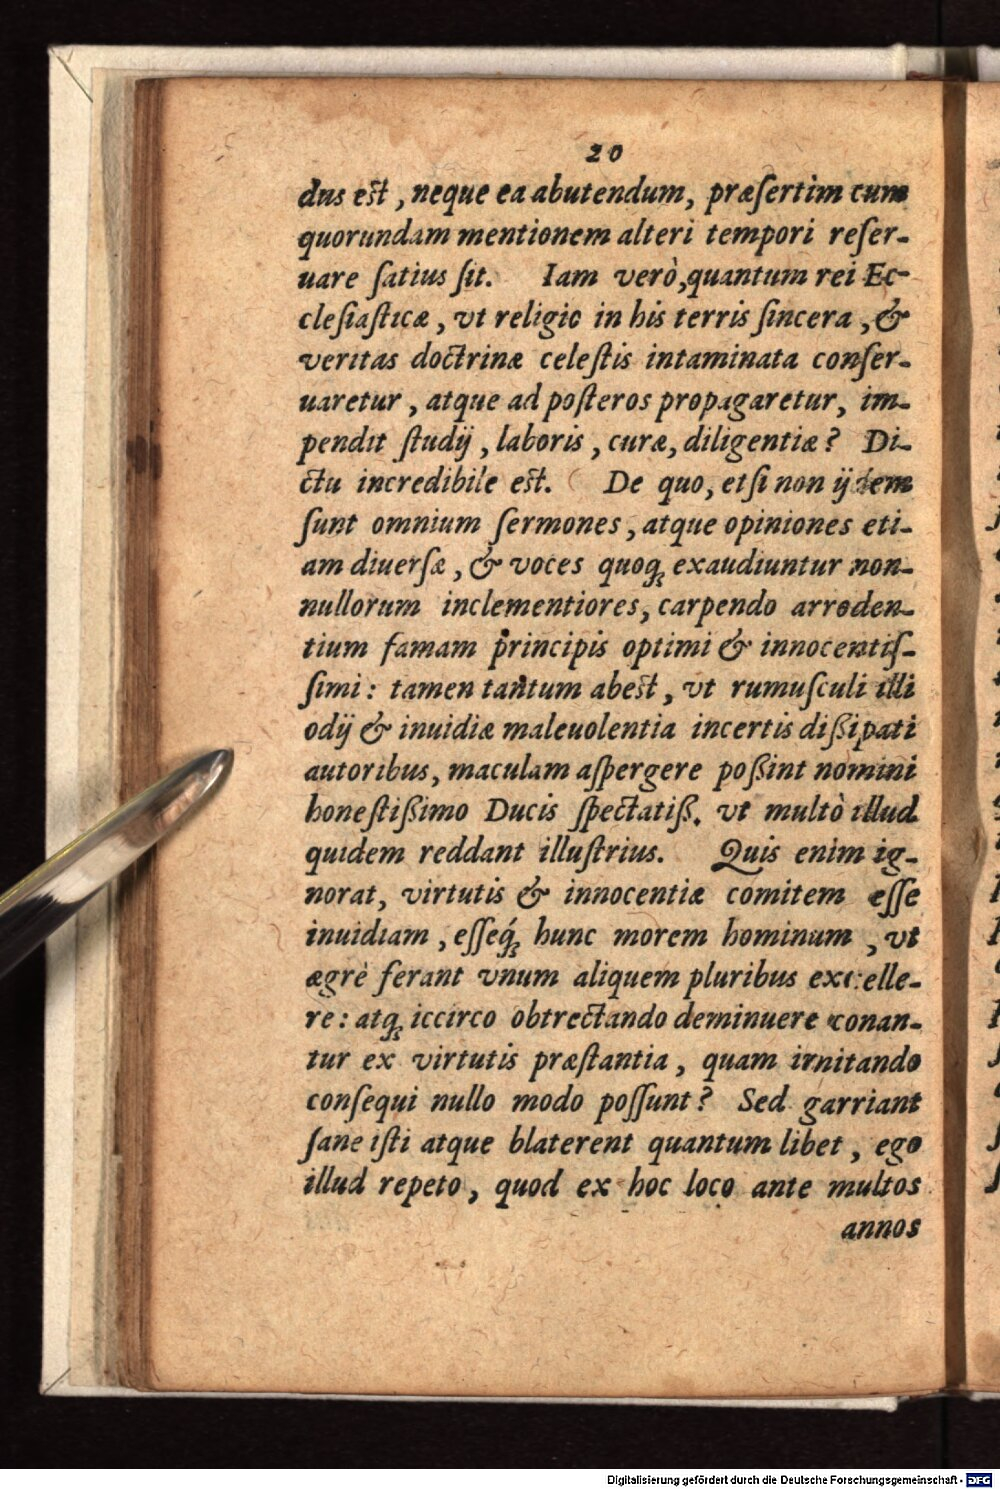 20
dus est, neque ea abutendum, præſertim cum
quorundam mentionem alteri tempori reſer-
uare ſatius ſit. Iam verò, quantum rei Ec-
cleſiaſticæ, vt religio in his terris ſincera, &
veritas doctrinæ celeſtis intaminata conſer-
uaretur, atque ad poſteros propagaretur, im-
pendit ſtudij, laboris, curæ, diligentiæ? Di-
ctu incredibile est. De quo, etſi non ijdem
ſunt omnium ſermones, atque opiniones eti-
am diuerſæ, & voces quoq; exaudiuntur non-
nullorum inclementiores, carpendo arroden-
tium famam principis optimi & innocentiſ-
ſimi: tamen tantum abest, vt rumuſculi illi
odij & inuidiæ maleuolentia incertis dißipati
autoribus, maculam aſpergere poßint nomini
honeſtißimo Ducis ſpectatiß. vt multò illud
quidem reddant illuſtrius. Quis enim ig-
norat, virtutis & innocentiæ comitem eſſe
inuidiam, eſſeq́; hunc morem hominum, vt
ægrè ferant vnum aliquem pluribus excelle-
re: atq; iccirco obtrectando deminuere conan-
tur ex virtutis præſtantia, quam imitando
conſequi nullo modo poſſunt? Sed garriant
ſane iſti atque blaterent quantum libet, ego
illud repeto, quod ex hoc loco ante multos
annos
Digitalisierung gefördert durch die Deutsche Forschungsgemeinschaft - DFG